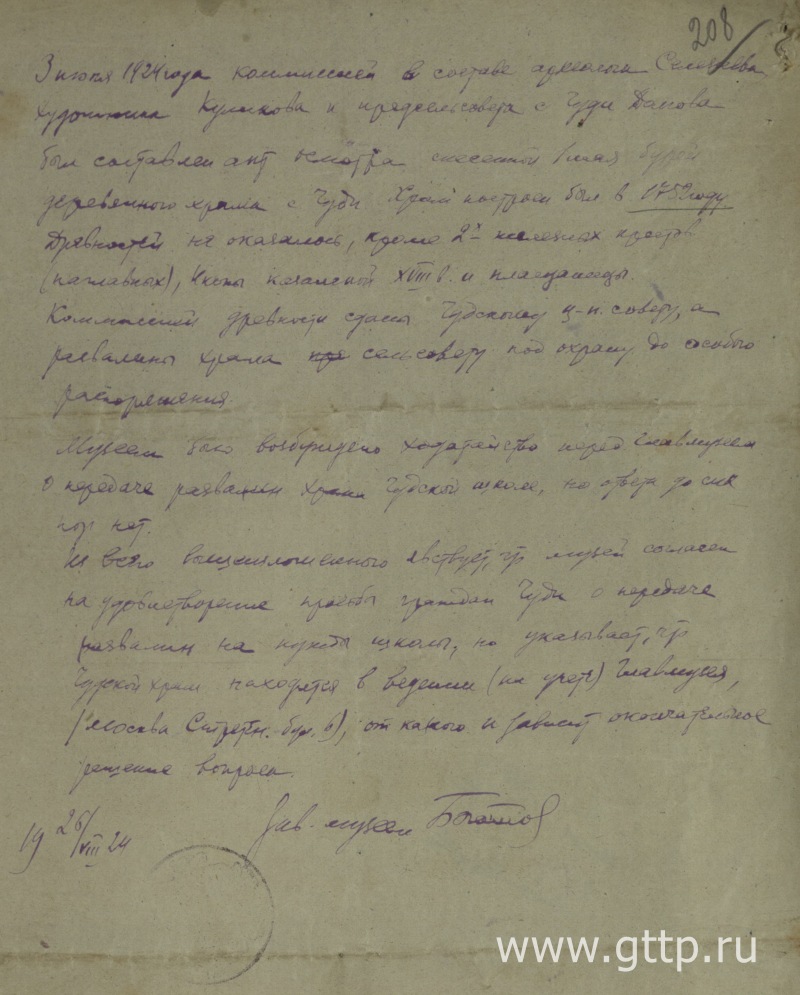 208
3 июня 1924 года комиссией в составе археолога Селезнева
художника Куликова и предсельсовета с Чуди
был составлен акт осмотра снесенной 1 мая бурей
деревянного храма с Чуди Храм построен был в 1752 году
Древностей не оказалось, кроме 2х железных крестов
(наглавных), Иконы XVIII в. и плащаницы.
Комиссией древности сданы Чудскому ц-п. совету, а
развалины храма сельсовету под охрану до особого
распоряжения.
Музеем было возбуждено ходатайство перед Главмузеем
о передаче развалин храма Чудской школе, но ответа до сих
пор нет.
Из всего вышеизложенного явствует, что музей согласен
на удовлетворение просьбы граждан Чуди о передаче
развалин на нужды школы, но указывает, что
Чудской храм находится в ведении (на учете) Главмузея,
(Москва Сретен. бул. 6), от какого и зависит окончательное
решение вопроса.
Зав. музеем Богатов
19 26/VIII 24
www.gttp.ru